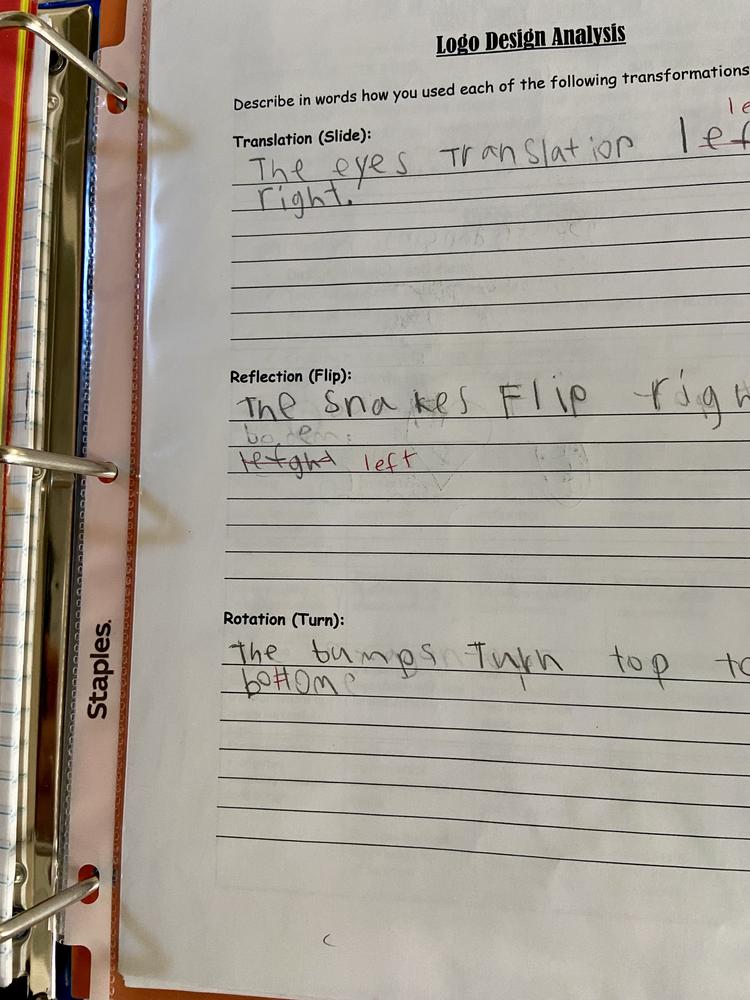 Logo Design Analysis
Describe in words how you used each of the following transformations
le
Translation (Slide):
The eyes Translation lef
right.
Reflection (Flip):
The Snakes Flip righ
left
Rotation (Turn):
The bumps Turn top to
bottom
Staples.